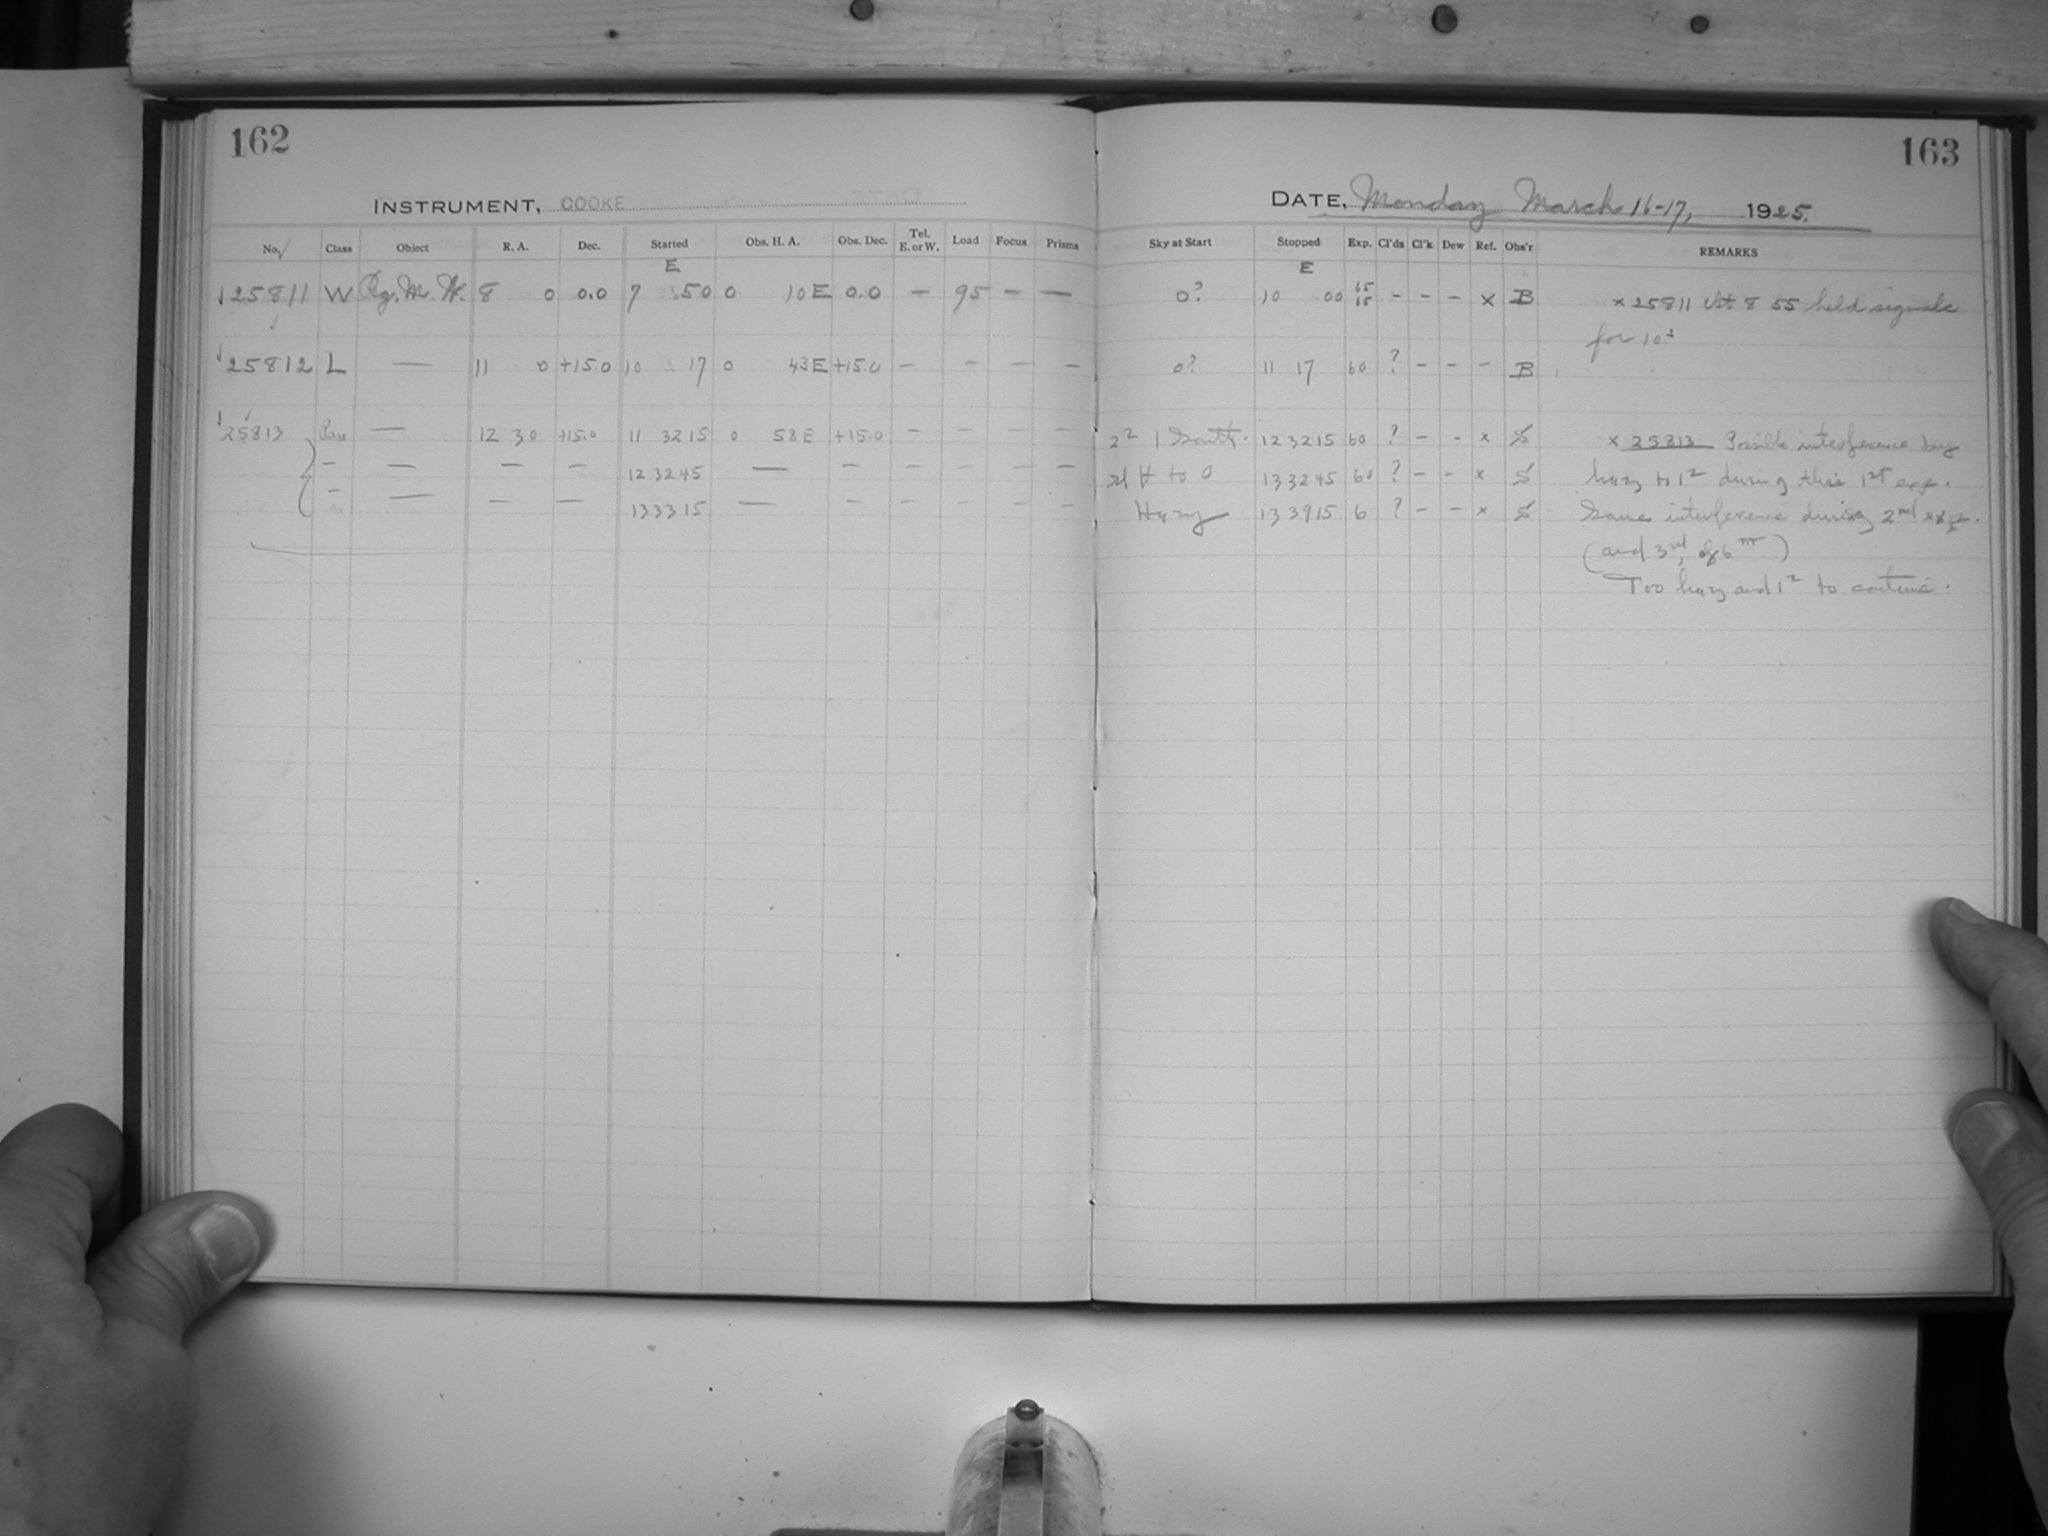 162
INSTRUMENT, COOKE
No. Class Object R. A. Dec. Started Obs. H. A. Obs. Dec. Tel. E. or W. Load Focus Prisms
E
25811 W Rg. M. W. 8 0 0.0 7 50 0 10 E 0.0 — 95 — —
25812 L — 11 0 +15.0 10 17 0 43 E +15.0 — — — — —
25813 — 12 30 +15.0 11 32 15 0 58 E +15.0 — — — — —
— — — — 12 32 45 — — — — — —
— — — — 13 33 15 — — — — — —
163
DATE, Monday March 16-17, 1925.
Sky at Start Stopped Exp. Cl'ds Cl'k Dew Ref. Obs'r REMARKS
E
0? 10 00 65 15 - - - x B x 25811 At 8 55 held signals
for 10s
0? 11 17 60 ? - - - B
2² 1 South. 12 32 15 60 ? - - x S x 25813 Possible interference by
to 0 13 32 45 60 ? - - x S hazy to 1² during this 1st exp.
Hazy 13 39 15 6 ? - - x S Same interference during 2nd exp.
(and 3rd, of 6m)
Too hazy and 1² to continue.